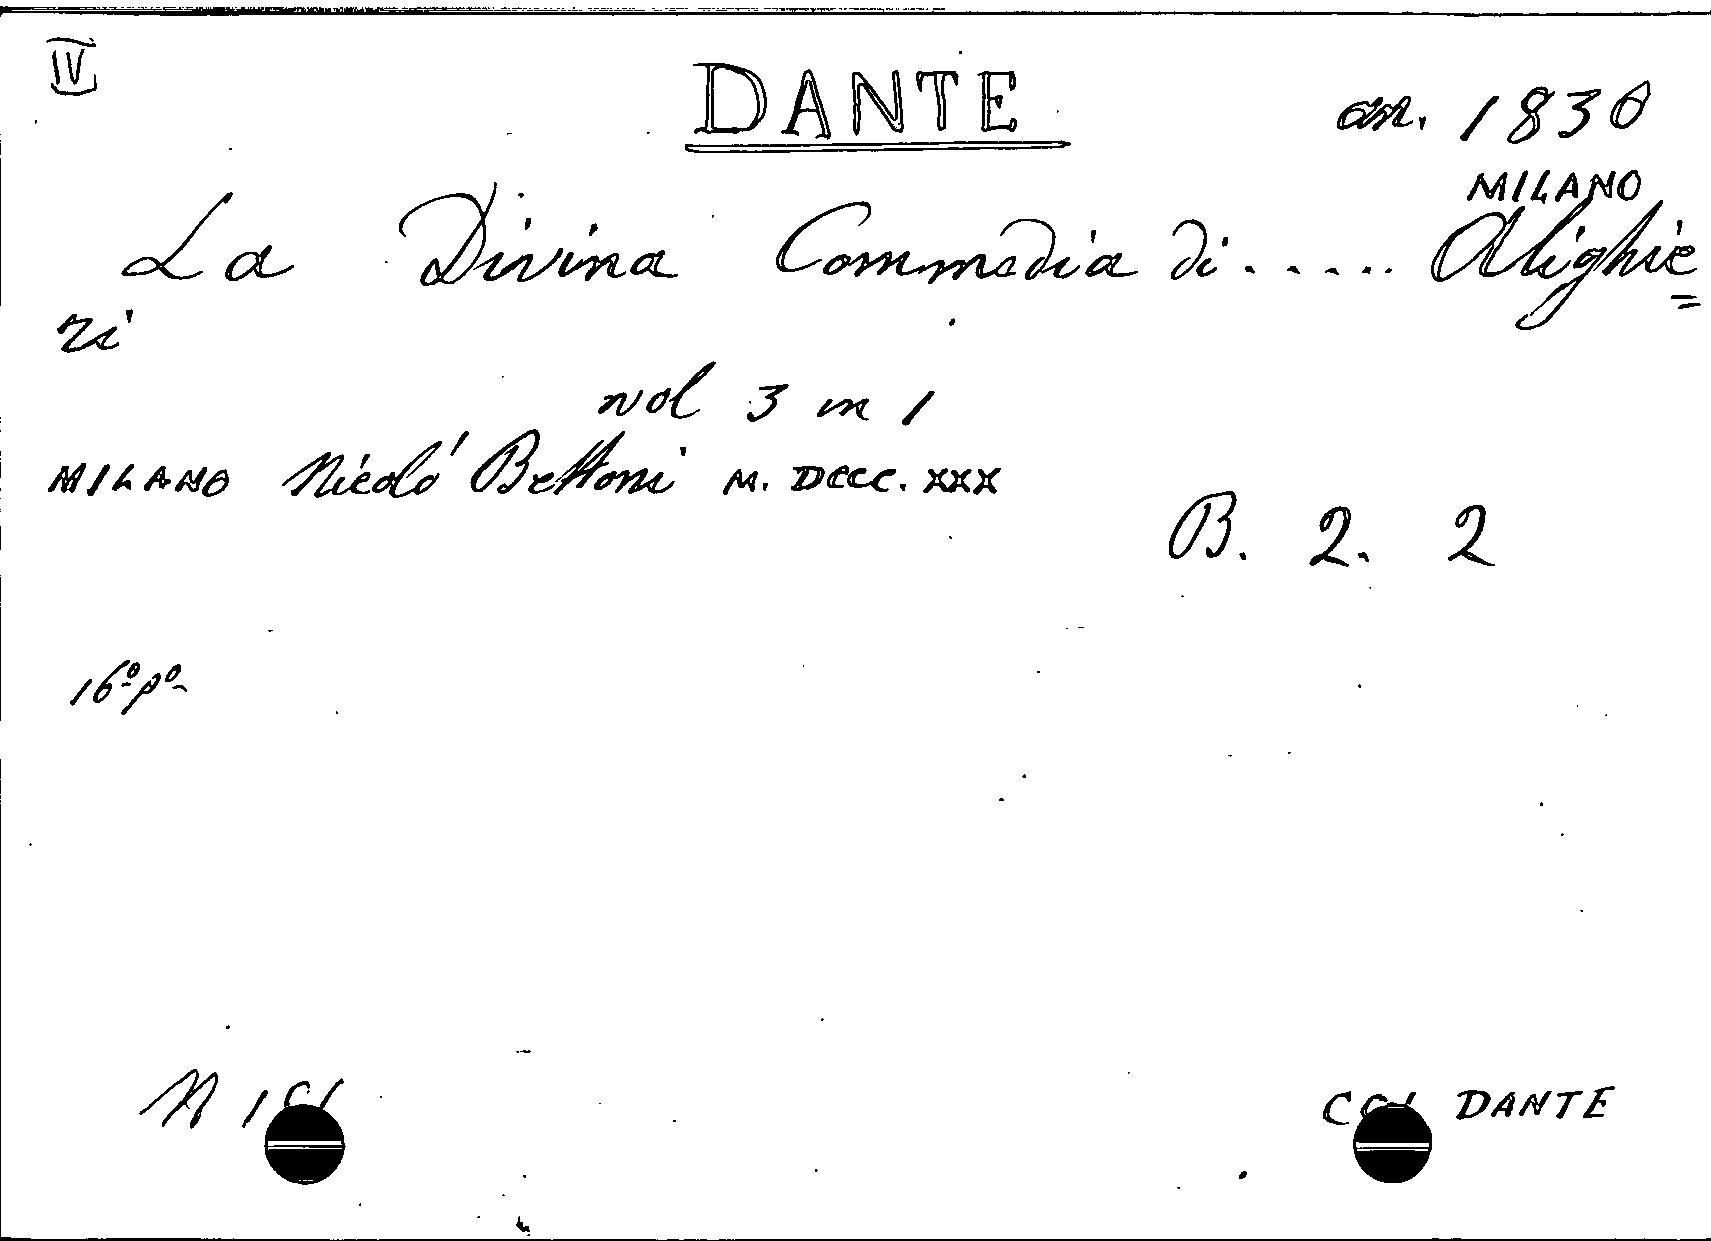 IV
DANTE
an. 1830
MILANO
La Divina Commedia di ..... Alighie=
ri
vol 3 in 1
MILANO Nicoló Bettoni M. DCCC. XXX
B. 2. 2
16º pº
N
DANTE